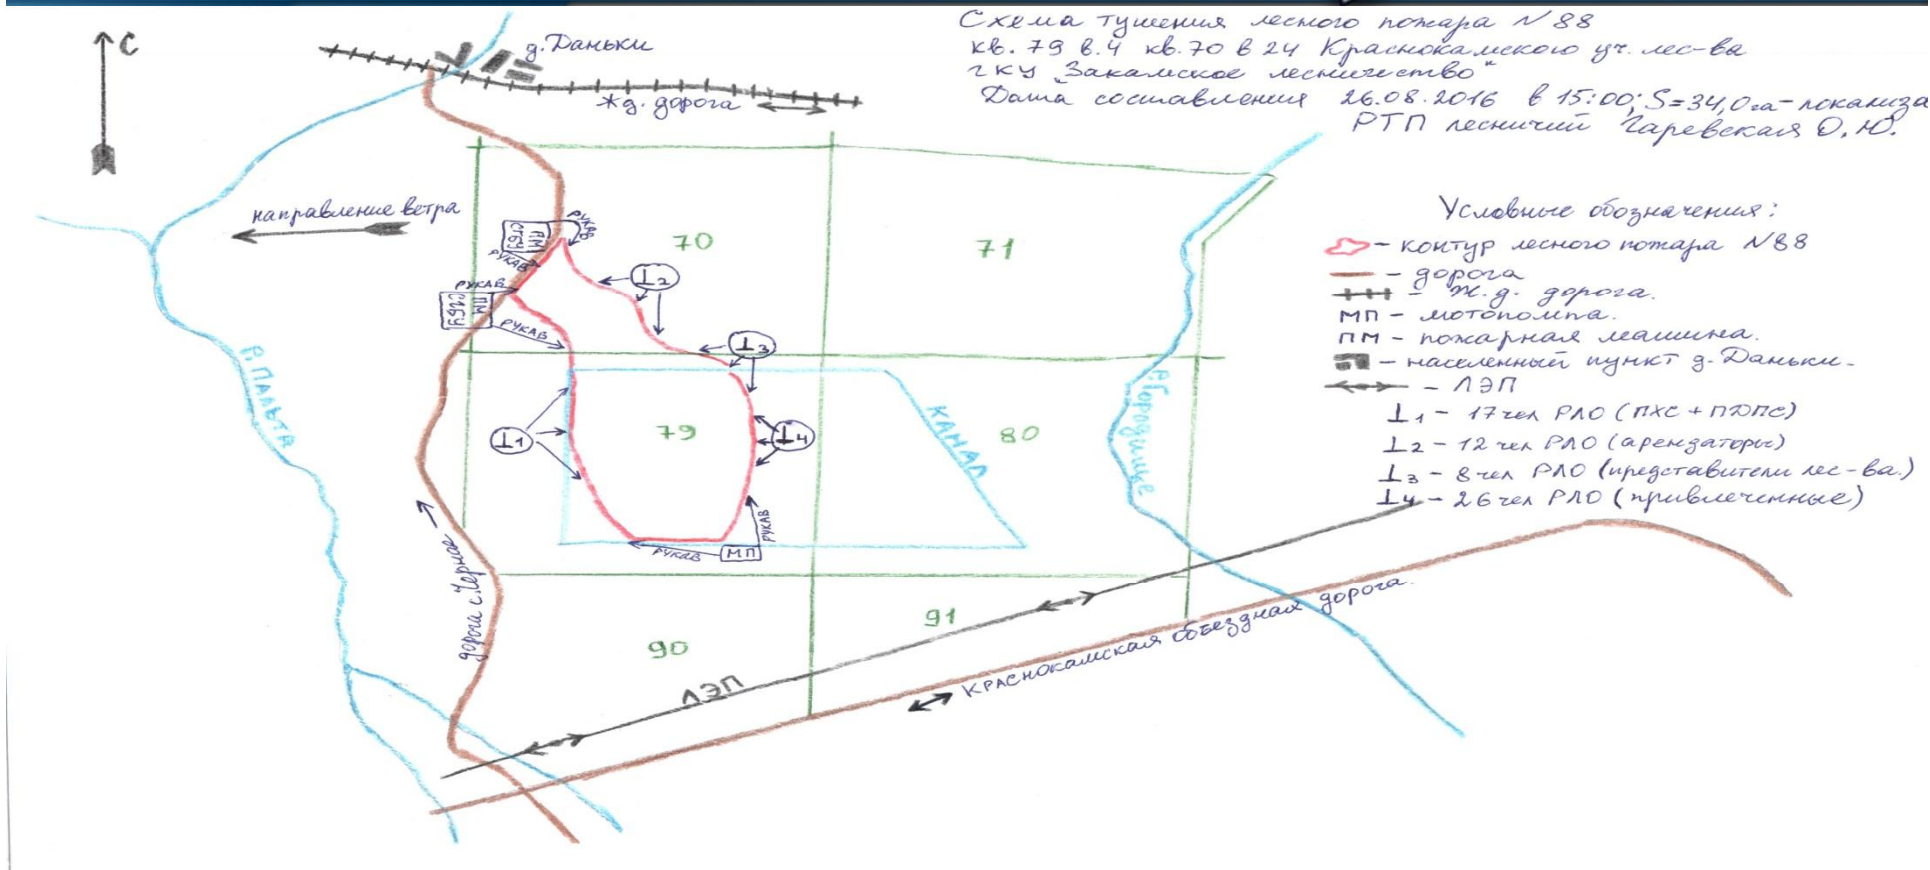 Схема тушения лесного пожара N 88
кв. 79 в.4 кв.70 в 24 Краснокамского уч. лес-ва
ГКУ „Закамское лесничество"
Дата составления 26.08.2016 в 15:00; S=34,0 га - локализа
РТП лесничий Гаревская О.Ю.
С
д. Даньки
ж д. дорога
направление ветра
Условные обозначения:
- контур лесного пожара N88
- дорога
- ж.д. дорога.
МП - мотопомпа.
ПМ - пожарная машина.
- населенный пункт д. Даньки.
- ЛЭП
⊥1 - 17 чел РЛО (ПХС + ПДПС)
⊥2 - 12 чел РЛО (арендаторы)
⊥3 - 8 чел РЛО (представители лес-ва.)
⊥4 - 26 чел РЛО (привлеченные)
70
71
РУКАВ
ПМ
СГБУ
РУКАВ
РУКАВ
ПМ
СГБУ
РУКАВ
⊥2
⊥3
Р.ПАЛЬТА
79
80
КАНАЛ
р.Городище
⊥1
⊥4
РУКАВ
МП
РУКАВ
дорога с.Черное
90
91
ЛЭП
КРАСНОКАМСКАЯ объездная дорога.